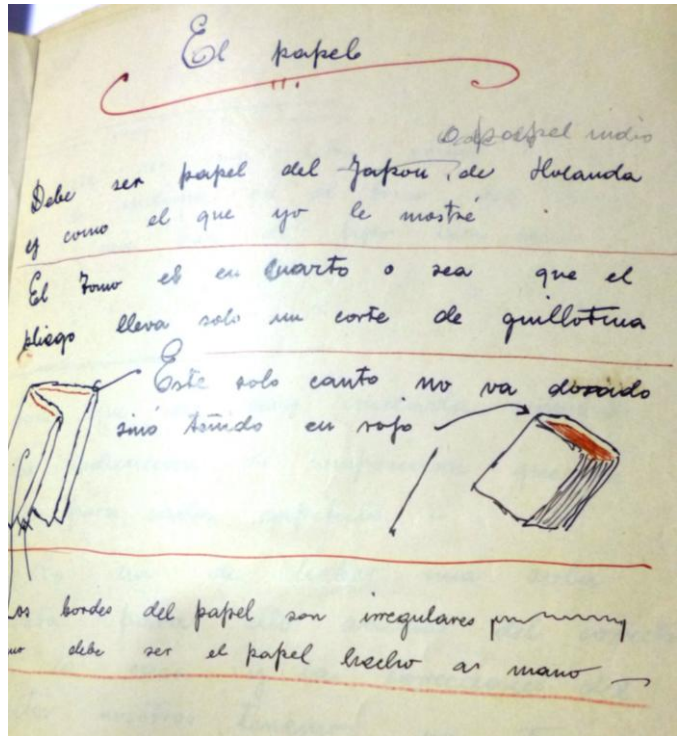 El papel
papel indio
Debe ser papel del Japon, de Holanda
y como el que yo le mostré
El Tomo es en cuarto o sea que el
pliego lleva solo un corte de guillotina
Este solo canto no va dorado
sinó teñido en rojo
os bordes del papel son irregulares
mo debe ser el papel hecho a mano